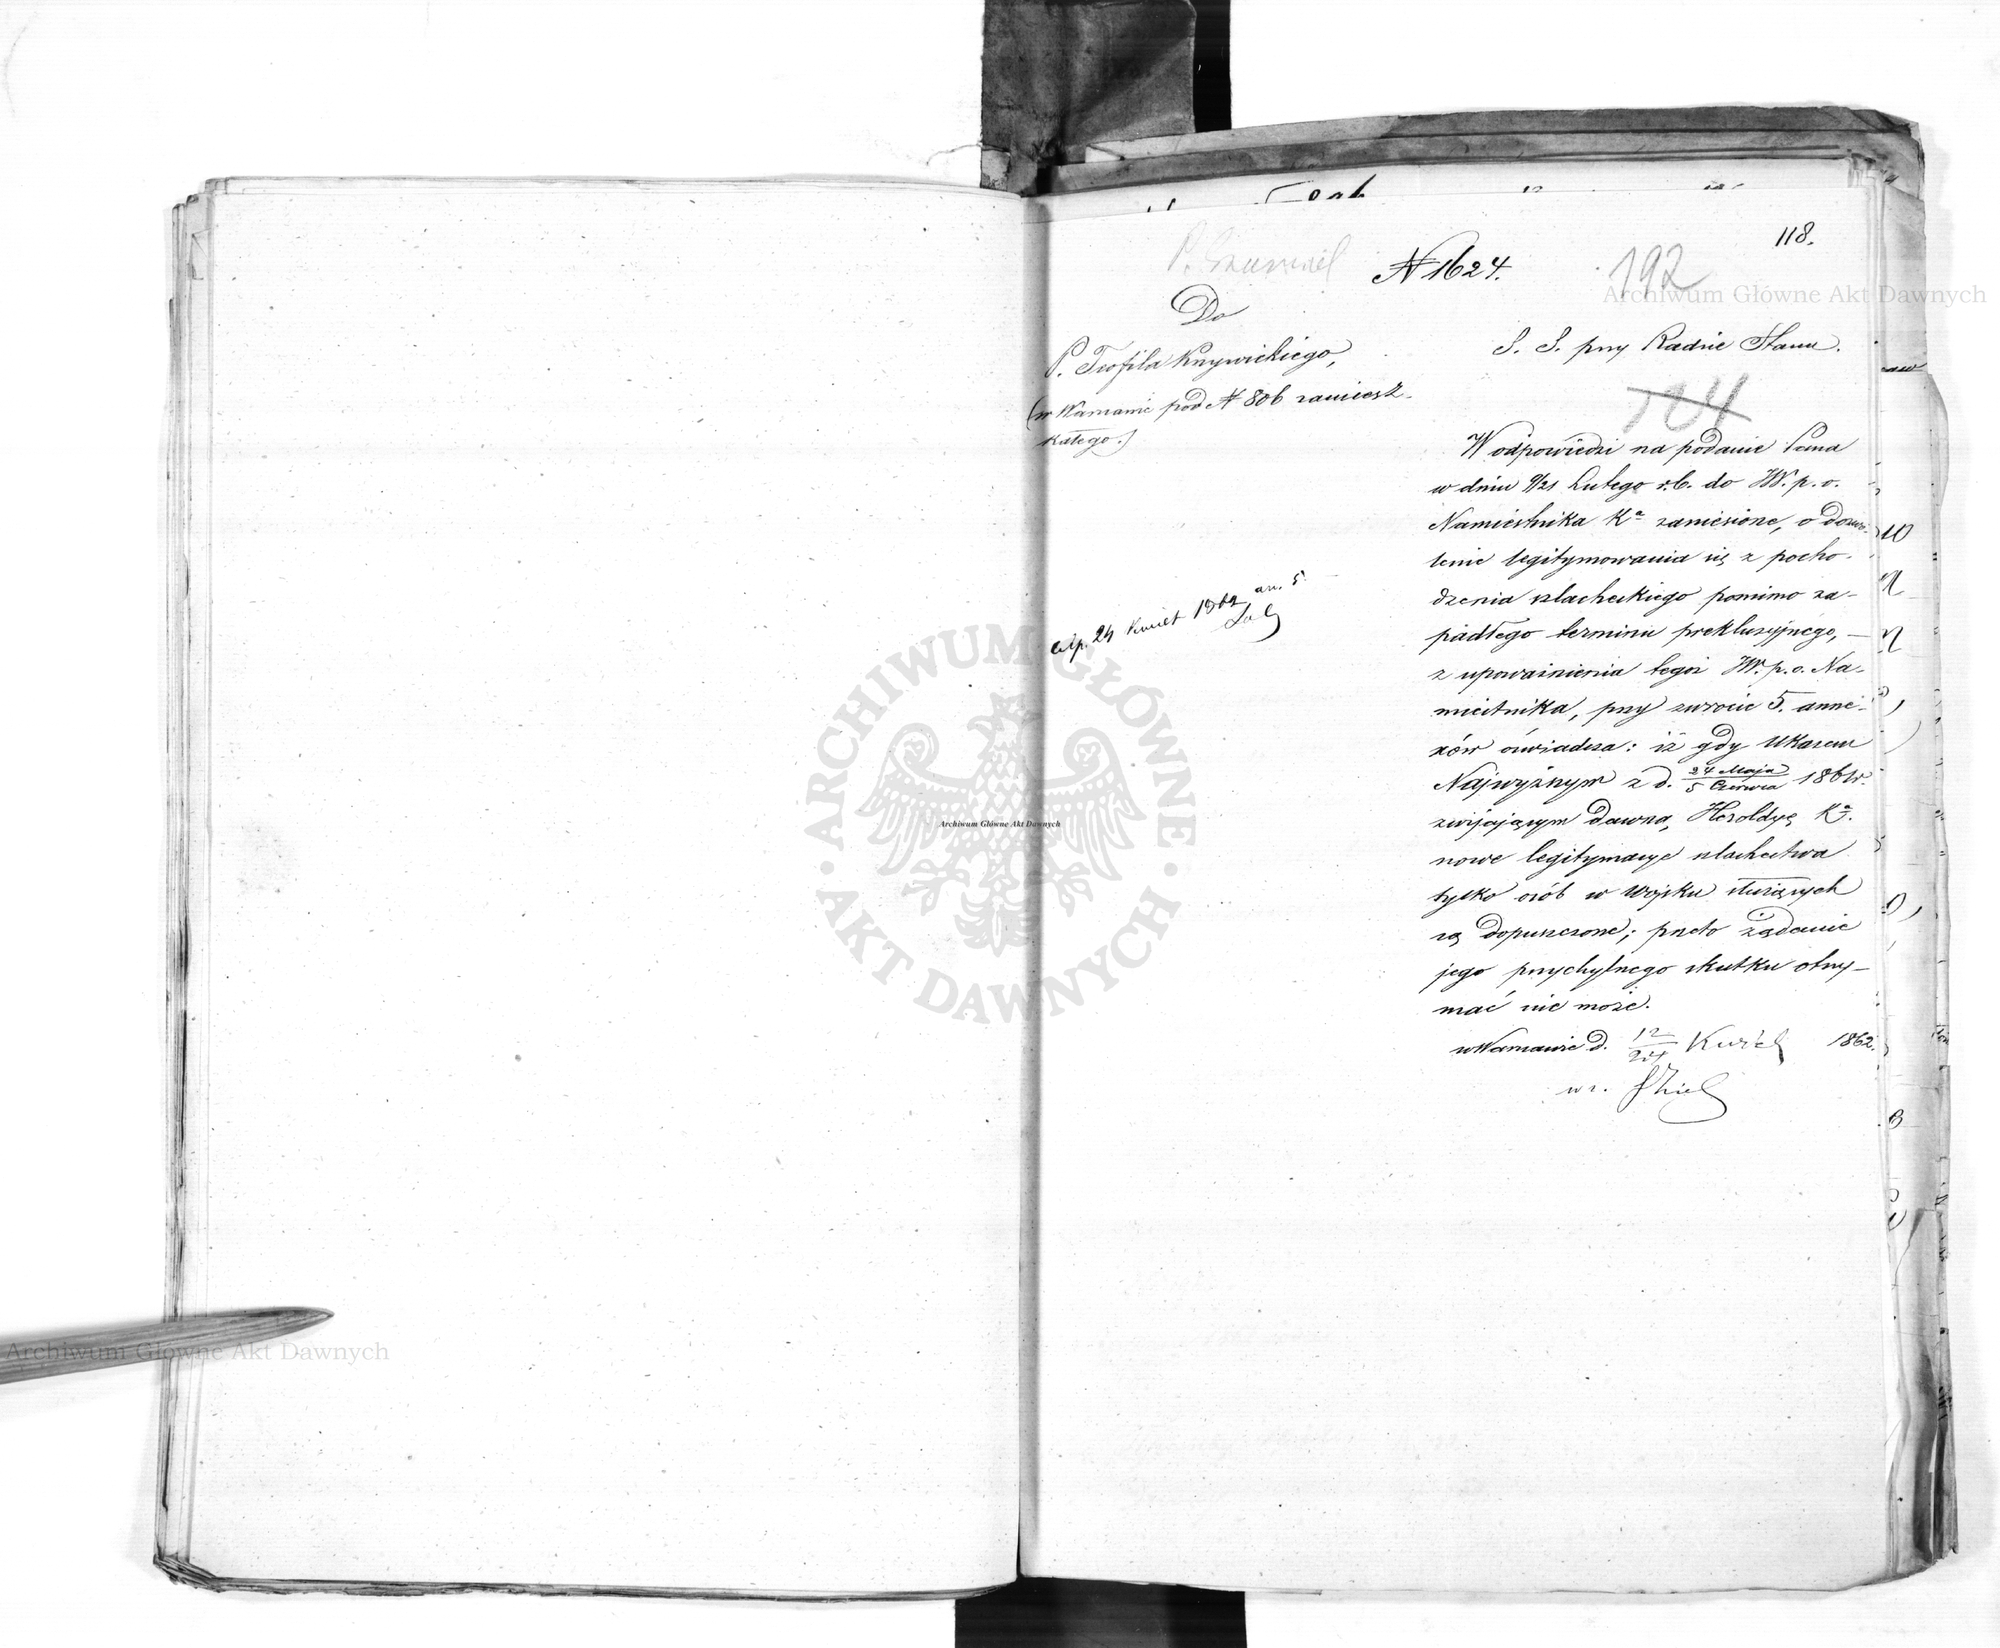 118.
192
N 1624.
Do
P. Teofila Krzywickiego,
(w Warszawie pod N 806 zamiesz-
kałego.)
S. S. przy Radzie Stanu.
124
W odpowiedzi na podanie Pana
w dniu 9/21 Lutego r.b. do JW. p. o.
Namiestnika Kª zaniesione, o dozwo-
lenie legitymowania się z pocho-
dzenia szlacheckiego pomimo za-
padłego terminu prekluzyjnego, —
z upoważnienia tegoż JW. p. o. Na-
miestnika, przy zwrocie 5. anne-
xów oświadcza: iż gdy Ukazem
Najwyższym z d. 24 Maja / 5 Czerwca 1861 r.
zwijającym dawną Heroldyę Kª.
nowe legitymacye szlachectwa
tylko osób w Wojsku służących
są dopuszczone; przeto żądanie
jego przychylnego skutku otrzy-
mać nie może.
w Warszawie d. 12/24 Kwiet 1862.
Exp. 24 Kwiet 1862 an. 5.
Archiwum Główne Akt Dawnych
Archiwum Główne Akt Dawnych
Archiwum Główne Akt Dawnych
ARCHIWUM GŁÓWNE
AKT DAWNYCH